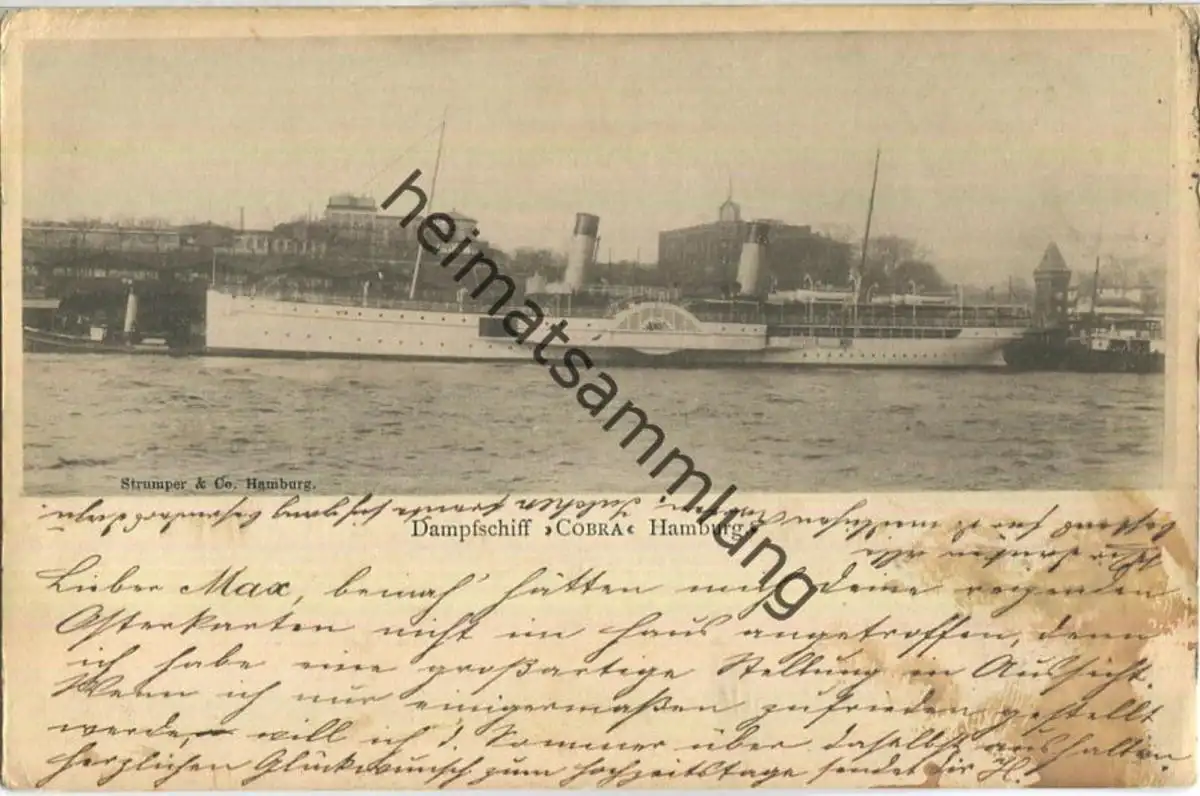 heimatsammlung
Strumper & Co. Hamburg.
Dampfschiff »COBRA« Hamburg.
Lieber Max, beinah' hätten mich deine reizenden
Osterkarten nicht im Haus angetroffen, denn
ich habe eine großartige Stellung in Aussicht.
Wenn ich nur einigermaßen zufrieden gestellt
werde, will ich d. Sommer über daselbst aushalten.
Herzlichen Glückwunsch zum Hochzeitstage sendet dir
Wir danken alle